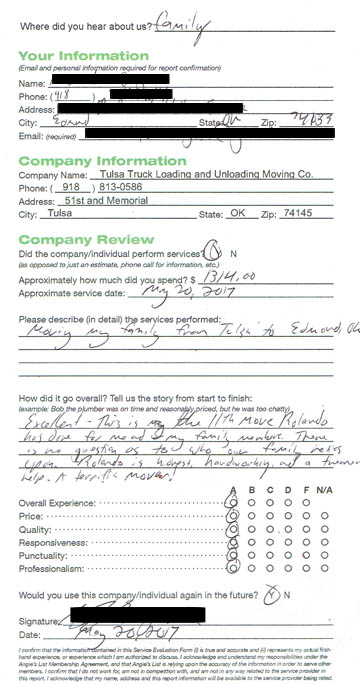 Where did you hear about us? family
Your Information
(Email and personal information required for report confirmation)
Name:
Phone: (918)
Address:
City: Edmond State: OK Zip:
Email: (required)
Company Information
Company Name: Tulsa Truck Loading and Unloading Moving Co.
Phone: ( 918 ) 813-0586
Address: 51st and Memorial
City: Tulsa State: OK Zip: 74145
Company Review
Did the company/individual perform services? Y N
(as opposed to just an estimate, phone call for information, etc.)
Approximately how much did you spend? $ 1314.00
Approximate service date: May 20, 2017
Please describe (in detail) the services performed:
Moving my family from Tulsa to Edmond, Ok
How did it go overall? Tell us the story from start to finish:
(example: Bob the plumber was on time and reasonably priced, but he was too chatty)
Excellent - This is the 11th move Rolando
has done for me and my family members. There
is no question as to who our family relies
upon. Rolando is honest, hardworking, and a
help. A terrific mover!
A B C D F N/A
Overall Experience:
Price:
Quality:
Responsiveness:
Punctuality:
Professionalism:
Would you use this company/individual again in the future? Y N
Signature:
Date: May 20, 2017
I confirm that the information contained in this Service Evaluation Form (i) is true and accurate and (ii) represents my actual first-
hand experience, or experience which I am authorized to discuss. I acknowledge and understand my responsibilities under the
Angie's List Membership Agreement, and that Angie's List is relying upon the accuracy of the information in order to serve other
members. I confirm that I do not work for, am not in competition with, and am not in any way related to the service provider in
this report. I acknowledge that my name, address and this report information will be available to the service provider being rated.